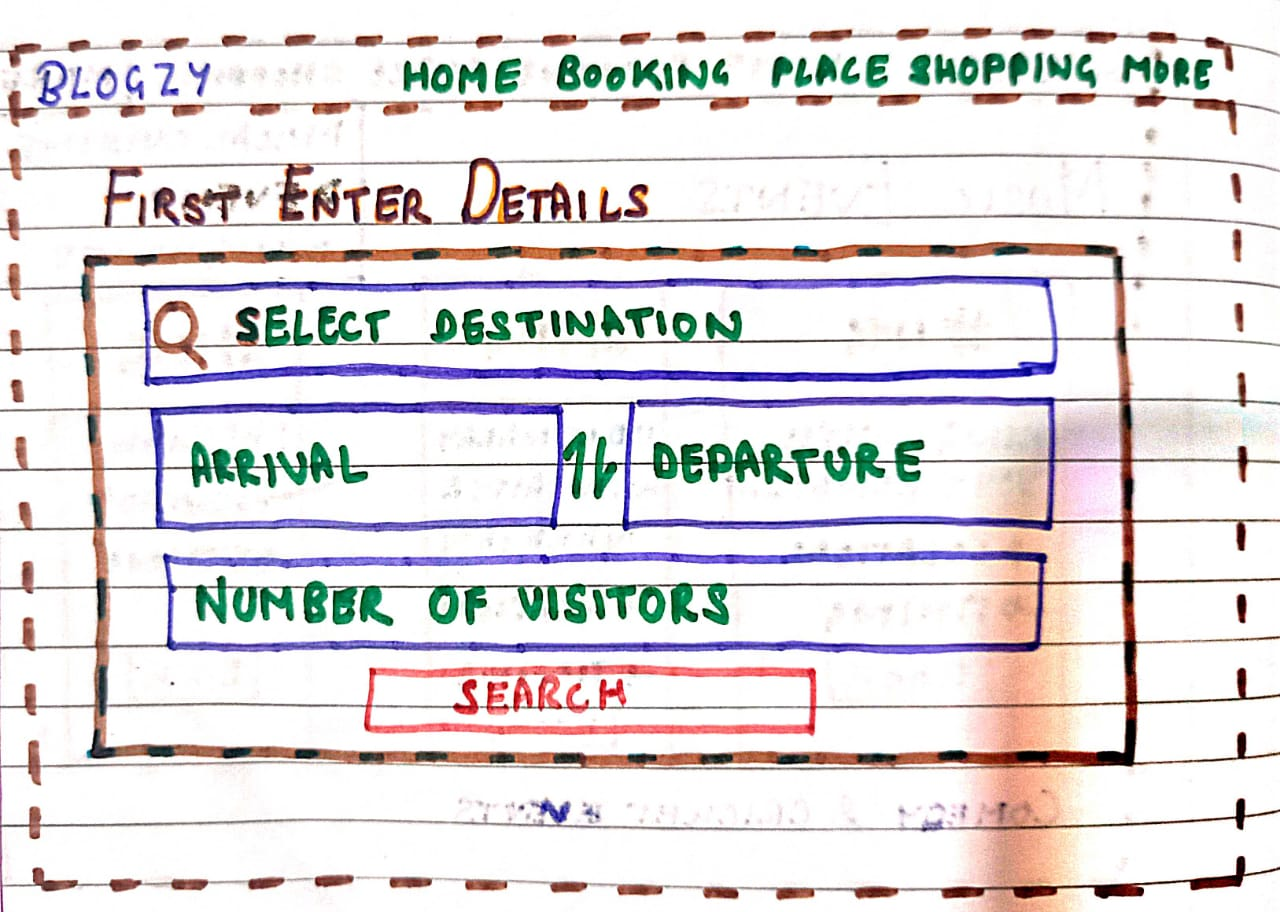 BLOGZY HOME BOOKING PLACE SHOPPING MORE
FIRST ENTER DETAILS
SELECT DESTINATION
ARRIVAL DEPARTURE
NUMBER OF VISITORS
SEARCH